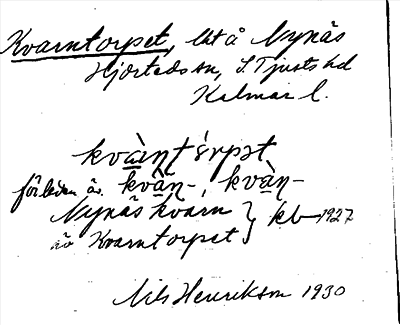 Kvarntorpet, lht å Nynäs
Hjorteds sn, S. Tjusts hd
Kalmar l.
kvàn̥tórpət
förleden äv. kvàn̥-, kvàn̥-
Nynäs kvarn } kb 1927
äv Kvarntorpet
Nils Henrikson 1930